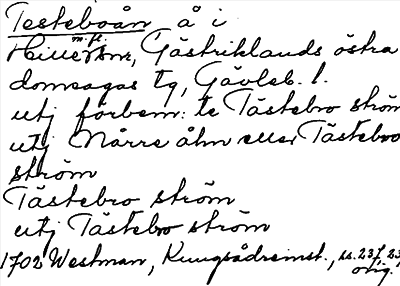 Testeboån, å i
Hille m.fl. snr, Gästriklands östra
domsagas tg, Gävleb. l.
utj förbem: te Tästebro ström
utj Nårre åhn eller Tästebro
ström
Tästebro ström
utj Tästebro ström
1702 Westman, Kungsådreinst., ss. 23f, 23
orig.